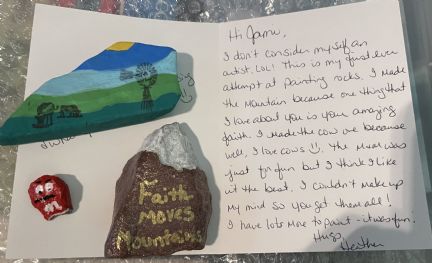 Faith
Moves
Mountains
Hi
I don't consider myself an
artist, LOL! This is my first ever
attempt at painting rocks. I made
the Mountain because one thing that
I love about you is your amazing
faith. I made the cow one because
well, I love cows. The was
just for fun but I think I like
it the best. I couldn't make up
my mind so you get them all!
I have lots more to paint - it was fun!
Hugs,
Heather